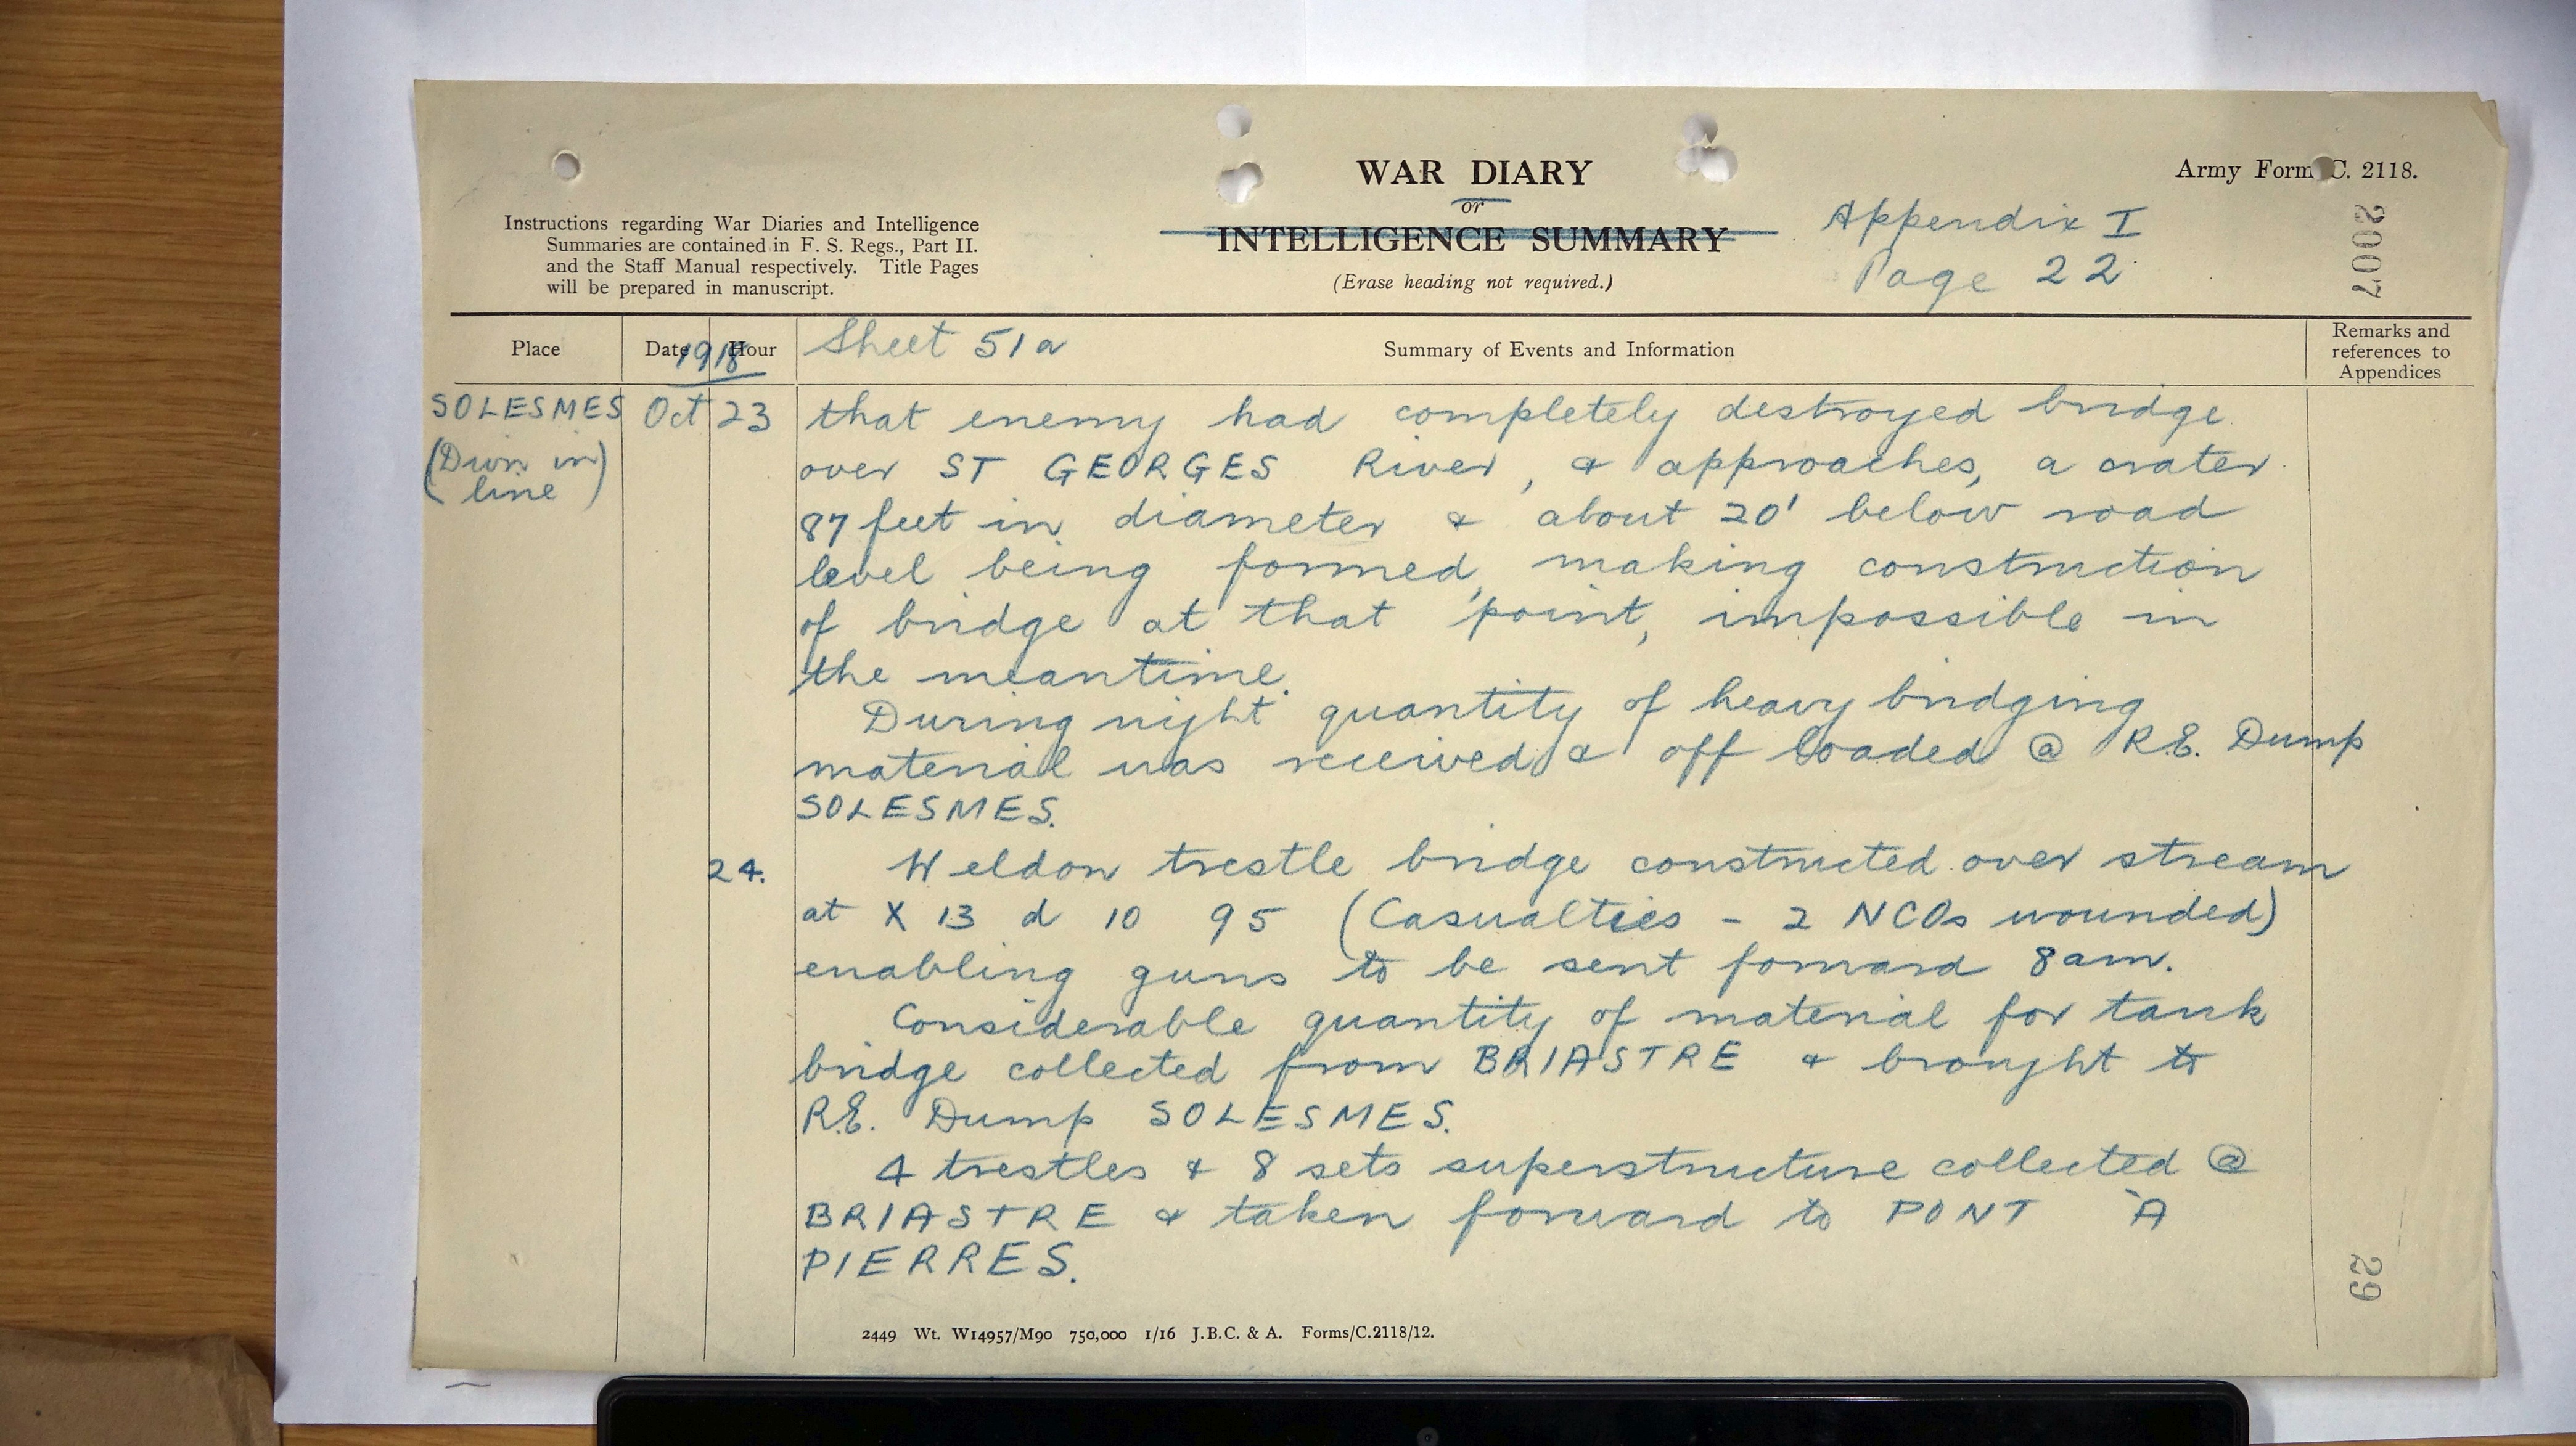 WAR DIARY
or
INTELLIGENCE SUMMARY
(Erase heading not required.)
Army Form C. 2118.
Instructions regarding War Diaries and Intelligence
Summaries are contained in F. S. Regs., Part II.
and the Staff Manual respectively. Title Pages
will be prepared in manuscript.
Appendix I
Page 22
2007
Place
Date
Hour
1918
Sheet 51a
Summary of Events and Information
Remarks and
references to
Appendices
SOLESMES
(Divn in
line)
Oct 23
that enemy had completely destroyed bridge
over ST GEORGES River, & approaches, a crater
87 feet in diameter & about 20' below road
level being formed, making construction
of bridge at that point, impossible in
the meantime.
During night quantity of heavy bridging
material was received & off loaded @ R.E. Dump
SOLESMES.
24.
Weldon trestle bridge constructed over stream
at X 13 d 10 95 (Casualties - 2 NCOs wounded)
enabling guns to be sent forward 8am.
Considerable quantity of material for tank
bridge collected from BRIASTRE & brought to
R.E. Dump SOLESMES.
4 trestles & 8 sets superstructure collected @
BRIASTRE & taken forward to PONT À
PIERRES.
29
2449 Wt. W14957/M90 750,000 1/16 J.B.C. & A. Forms/C.2118/12.